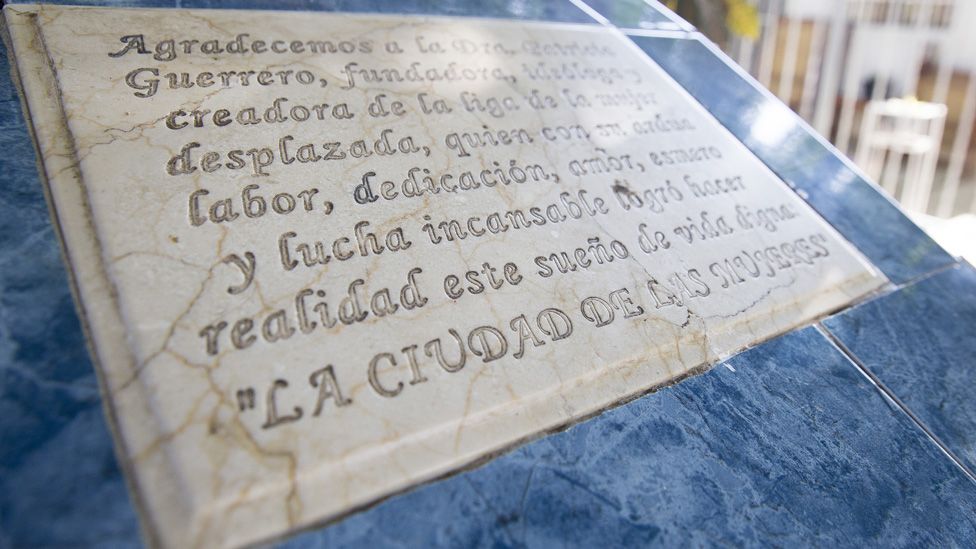 Agradecemos a la Dra. Patricia
Guerrero, fundadora, ideóloga y
creadora de la liga de la mujer
desplazada, quien con su ardua
labor, dedicación, amor, esmero
y lucha incansable logró hacer
realidad este sueño de vida digna:
"LA CIUDAD DE LAS MUJERES"